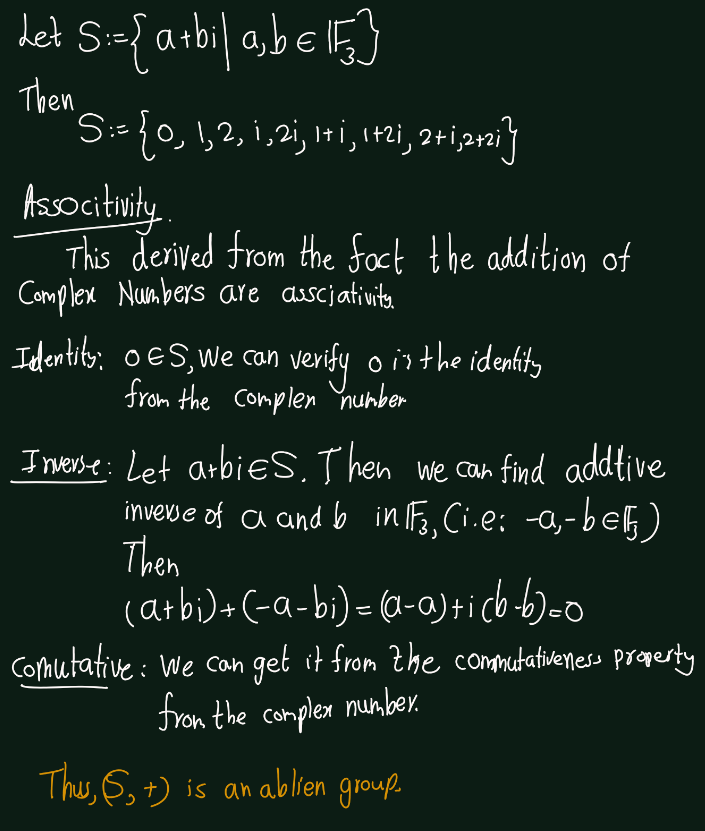 Let S:={a+bi| a,b ∈ 𝔽₃}
Then
S:= {0, 1, 2, i, 2i, 1+i, 1+2i, 2+i, 2+2i}
Associtivity.
This derived from the fact the addition of
Complex Numbers are assciativity.
Identity: 0∈S, We can verify 0 is the identity
from the complex number
Inverse: Let a+bi∈S. Then we can find addtive
inverse of a and b in 𝔽₃, (i.e: -a,-b ∈ 𝔽₃)
Then
(a+bi)+(-a-bi)=(a-a)+i(b-b)=0
Comutative: We can get it from the commutativeness property
from the complex number.
Thus, (S, +) is an ablien group.